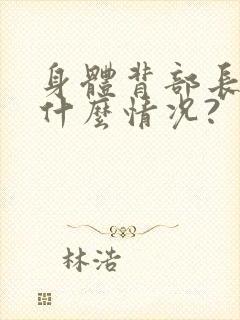 身體背部長
什麼情況?
林浩